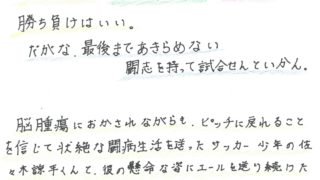 勝ち負けはいい。
だがな、最後まであきらめない
闘志を持って試合せんといかん。
脳腫瘍におかされながらも、ピッチに戻れること
を信じて壮絶な闘病生活を送ったサッカー少年の佐
々木諒平くんと、彼の懸命な姿にエールを送り続けた